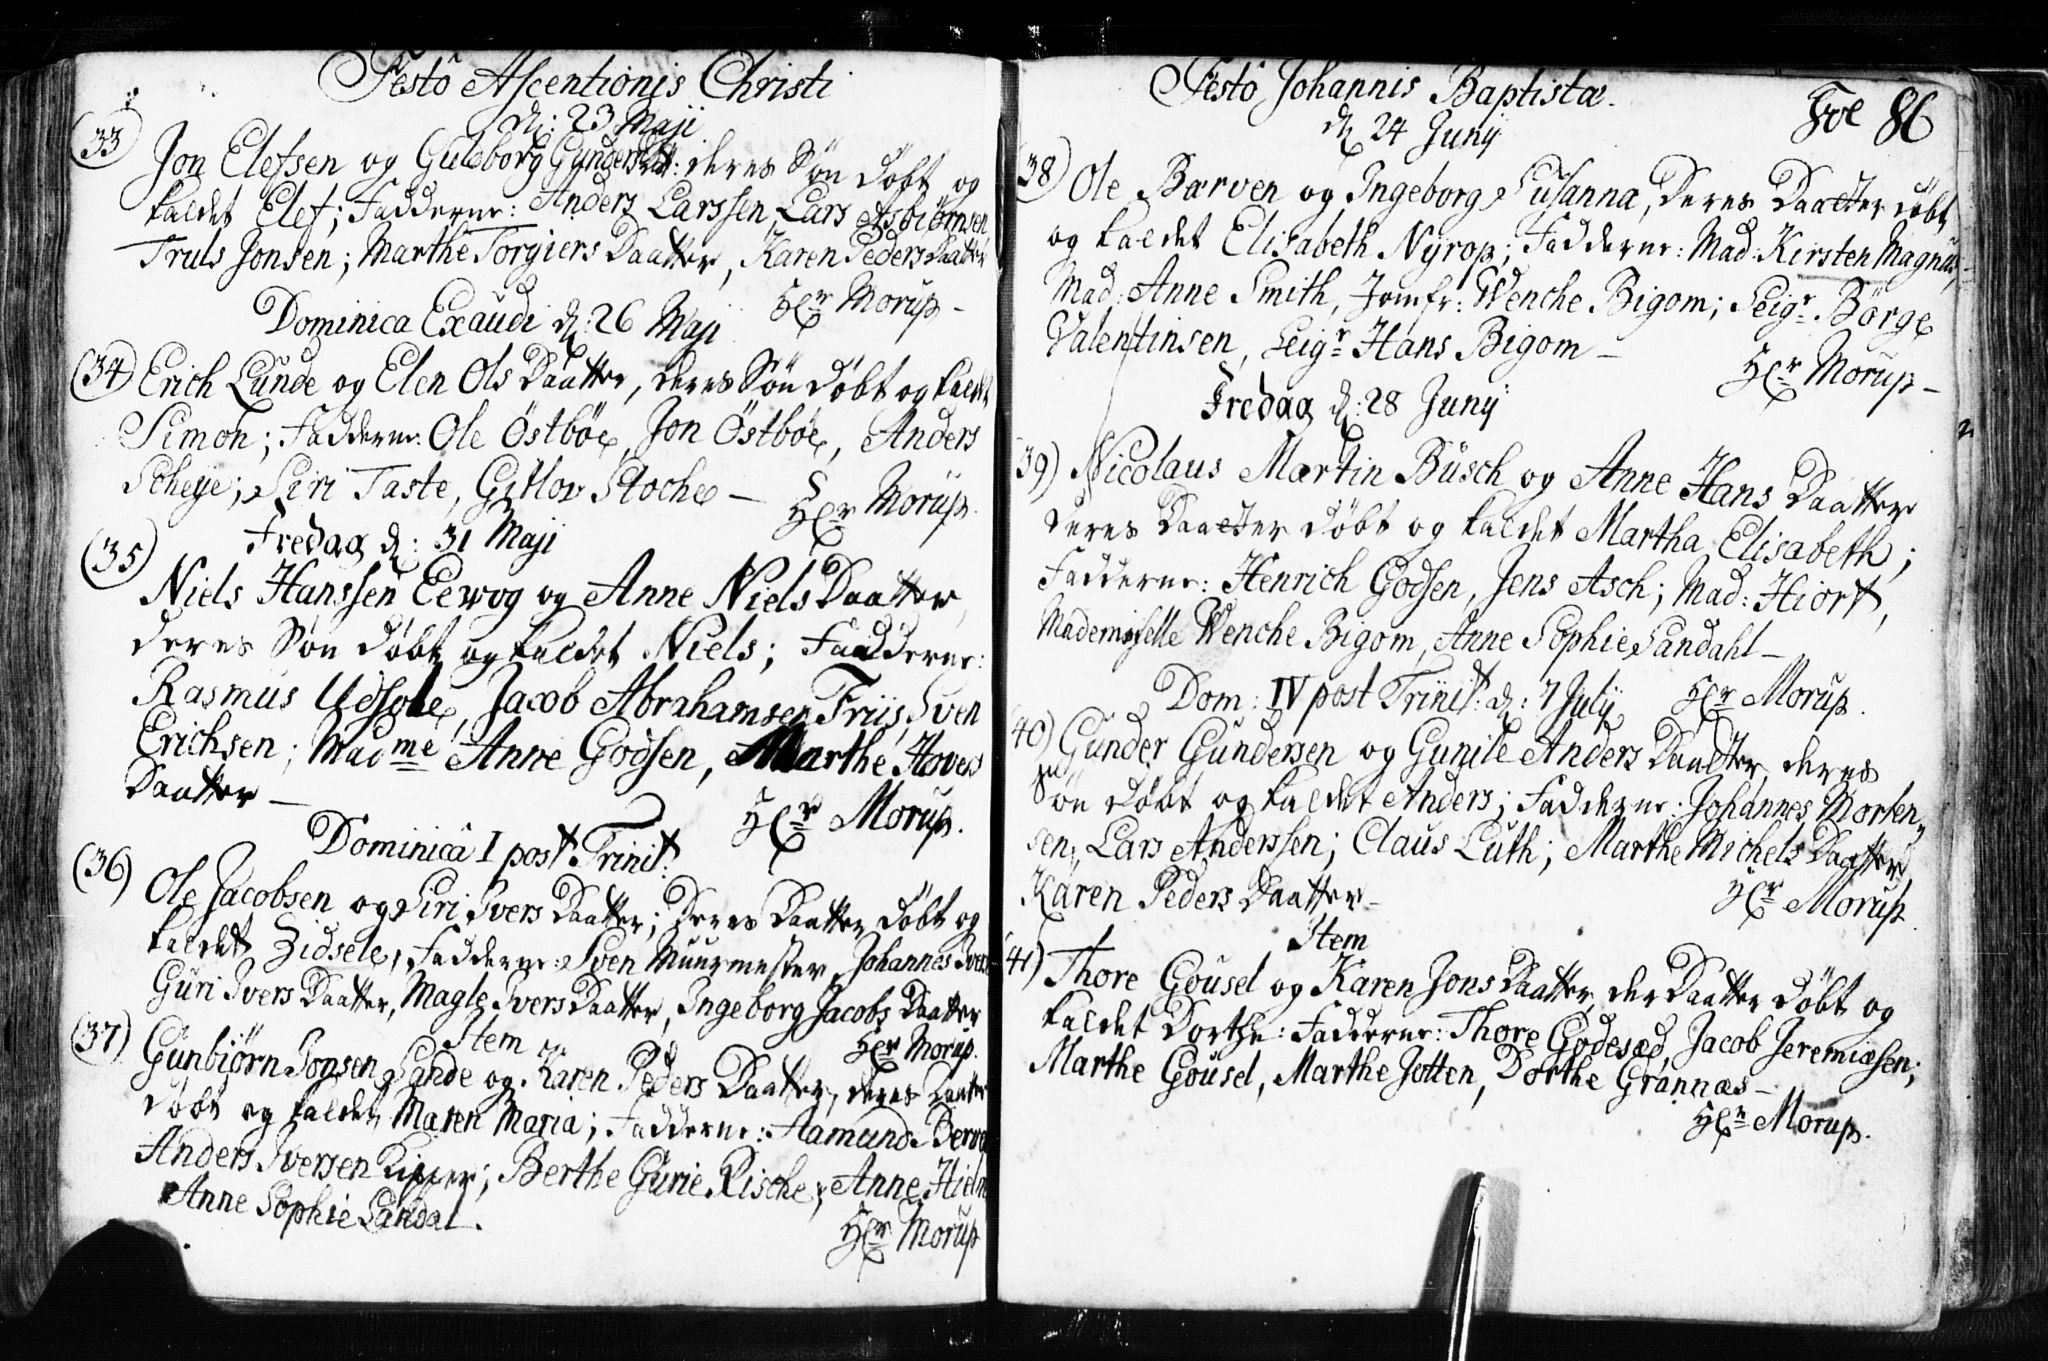 Festô Ascentionis Christi
d: 23 Maji
33
Jon Elefsen og Guleborg Gunders D: deres Søn døbt og
kaldet Elef; Fadderne: Anders Larssen, Lars Asbiørnsen
Truls Jonsen; Marthe Torgiers Daatter, Karen Peders Daatter
Hr Morup
Dominica Exaudi d: 26 Maji
34) Erich Lunde og Elen Ols Daatter, deres Søn døbt og kaldt
Simon; Fadderne: Ole Östböe, Jon Östböe, Anders
Scheye; Siri Taste, Gitlov Stoche –
Hr Morup.
Fredag d: 31 Maji
35)
Niels Hanssen Eewog og Anne Niels Daatter,
deres Søn døbt og kaldet Niels; Fadderne:
Rasmus Udsole, Jacob Abrahamsen Friis, Sven
Erichsen; Madme Anne Godsen, Marthe Hover
Daatter –
Hr Morup.
Dominicâ I post Trinit:
(36)
Ole Jacobsen og Siri Ivers Daatter; Deres Daatter døbt og
kaldet Zidsele, Fadderne: Sven Muurmester, Johannes Ivers
Guri Ivers Daatter, Magle Ivers Daatter, Ingeborg Jacobs Daatter
Item
Hr Morup.
(37)
Gunbiørn Jonsen Sande og Karen Peders Daatter, deres Daatter
døbt og kaldet Maren Maria; Fadderne: Aamund Berven
Anders Iversen Kipper; Berthe Gurie Rische, Anne Hielm
Anne Sophie Sandal.
Hr Morup
Festô Johannis Baptistæ.
Foe 86
d 24 Junij
38) Ole Bærven og Ingeborg Susanna, Deres Daatter døbt
og kaldet Elisabeth Nyrop; Fadderne: Mad: Kirsten Magnus,
Mad: Anne Smith, Jomfr: Wenche Bigom; Seigr Börge
Valentinsen, Seigr Hans Bigom –
Hr Morup –
Fredag d: 28 Junij
39) Nicolaus Martin Büsch og Anne Hans Daatter
deres Daatter døbt og kaldet Martha Elisabeth;
Fadderne: Henrich Godsen, Jens Asch; Mad: Hiort,
Mademoiselle Wenche Bigom, Anne Sophie Sandahl –
Dom: IV post Trinit: d: 7 July
Hr Morup.
40) Gunder Gundersen og Gunile Anders Daatter, deres
Søn døbt og kaldet Anders; Fadderne: Johannes Morten„
sen, Lars Anderssen; Claus Luth; Marthe Michels Daatter
Karen Peders Daatter –
Hr Morup.
Item
41) Thore Gousel og Karen Jons Daatter, der Daatter døbt og
kaldet Dorthe: Fadderne: Thore Godesæd, Jacob Jeremiæsen;
Marthe Gousel, Marthe Jotten, Dorthe Grannæs –
Hr Morup.